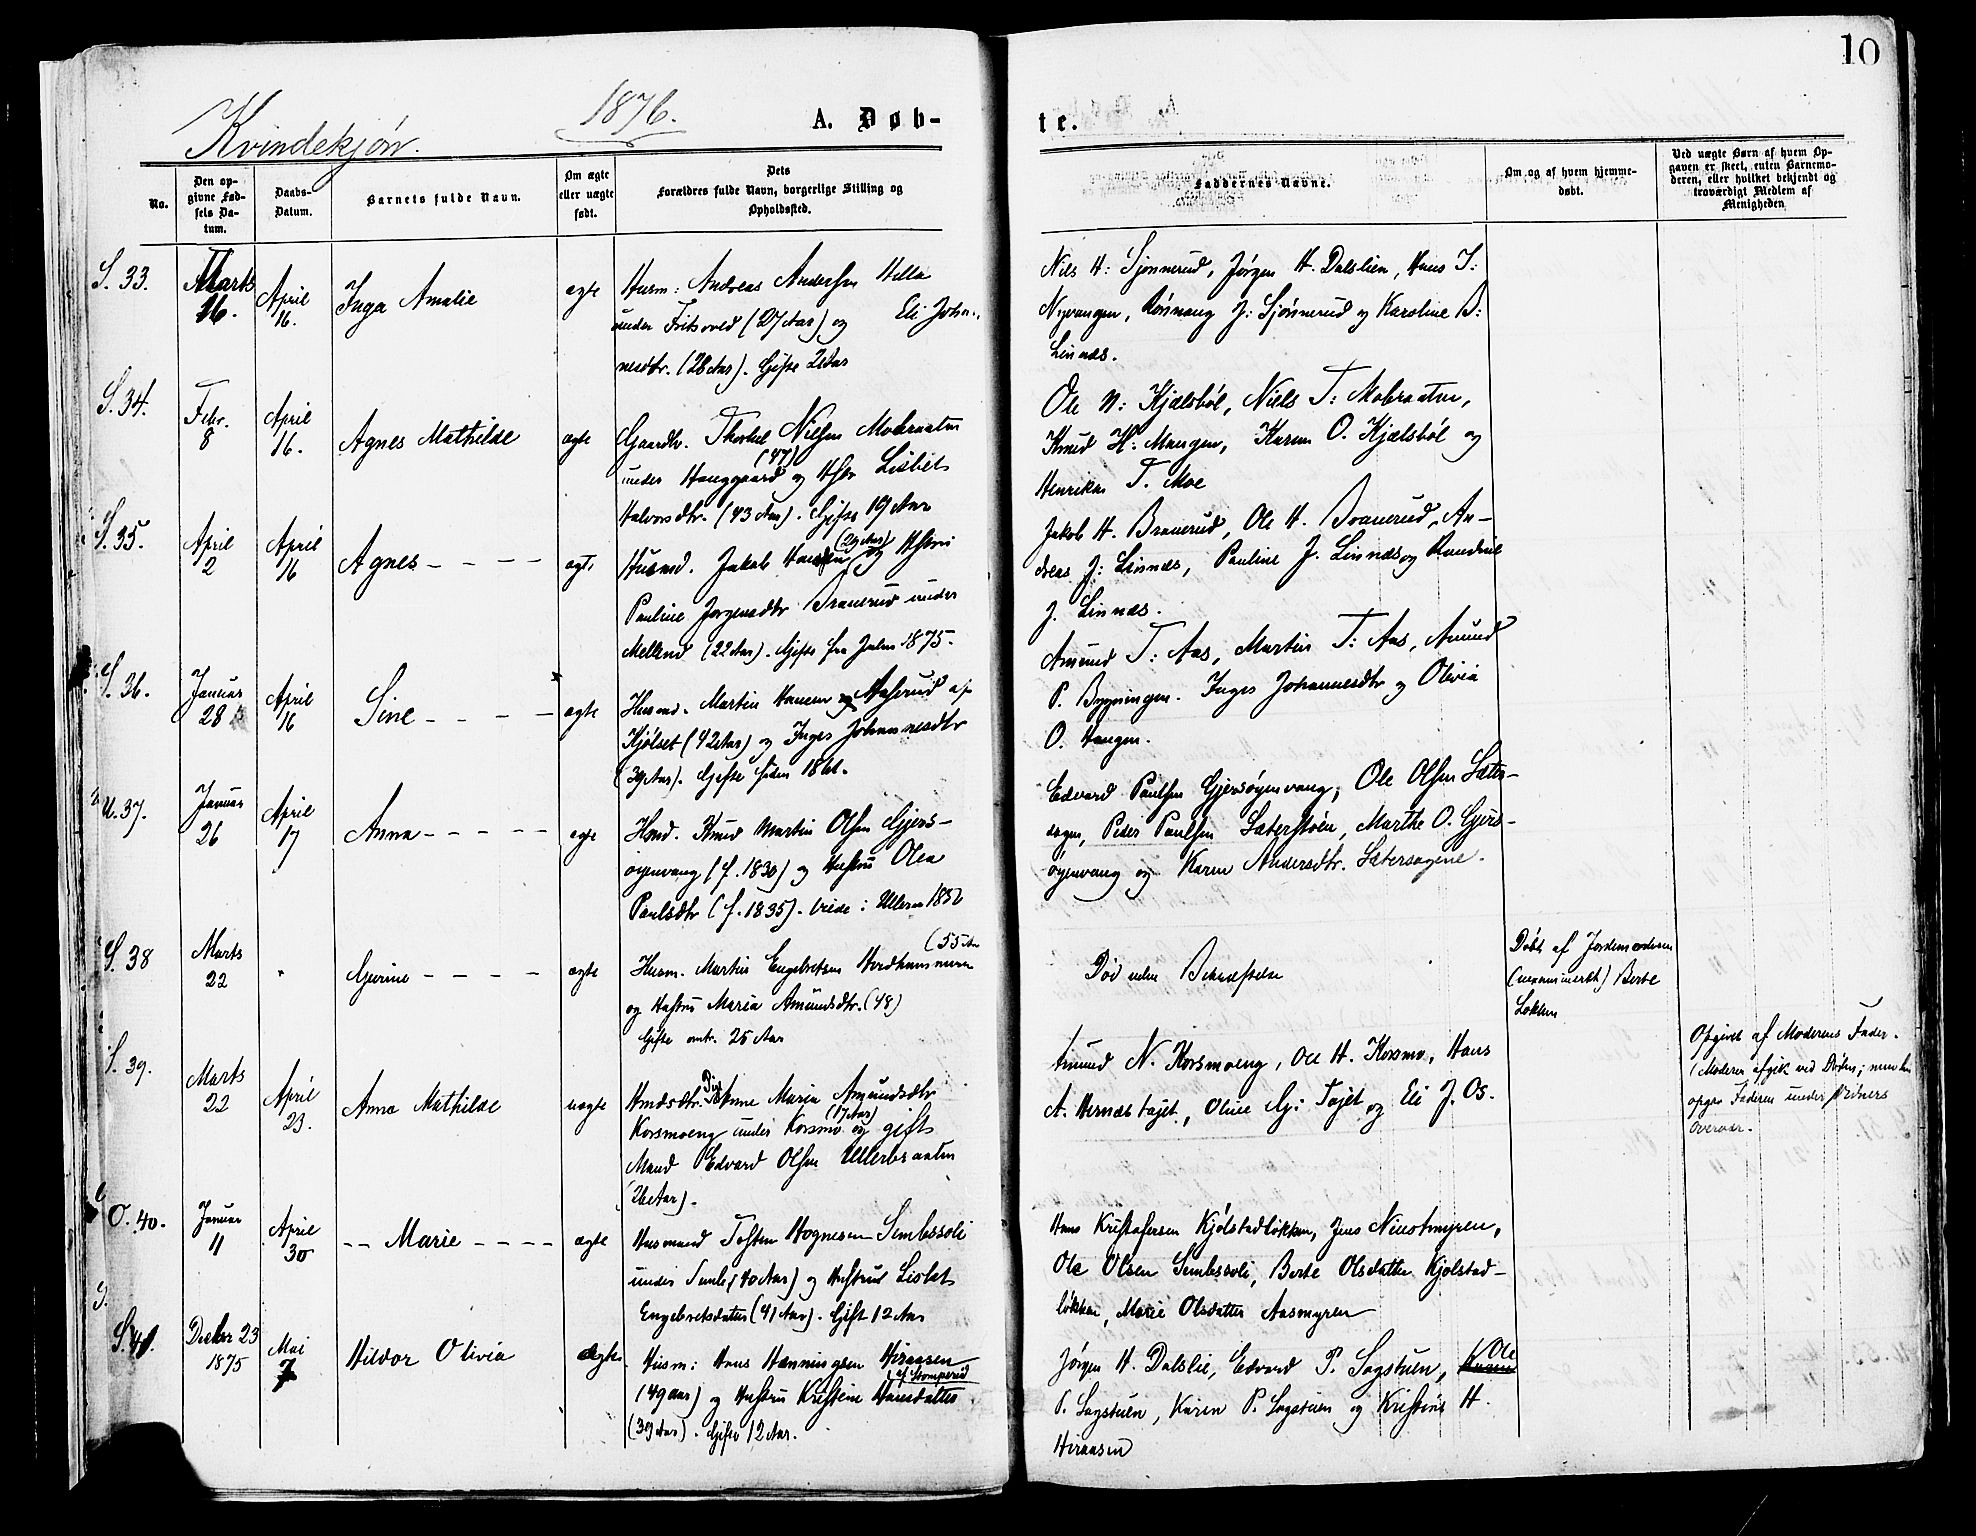 10
Kvindekjøn.
1876.
A. Døb-
te.
No.
Den op-
givne Fød-
sels Da-
tum.
Daabs-
Datum.
Barnets fulde Navn.
Om ægte
eller uægte
født.
Dets
Forældres fulde Navn, borgerlige Stilling og
Opholdssted.
Faddernes Navne.
Om og af hvem hjemme-
døbt.
Ved uægte Børn af hvem Op-
gaven er skeet, enten Barnemo-
deren, eller hvilket bekjendt og
troværdigt Medlem af
Menigheden
S. 33.
Marts
16.
April
16.
Inga Amalie
ægte
Husm: Andreas Andersen
under (27 Aar) og Eli Johan-
nesdtr. (28 Aar). Gifte 2 Aar
Nils H: Sjønnerud, Jørgen H. Dalslien, Hans J:
Nyvangen, Rønnaug J: Sjønnerud og Karoline B:
Linnæs.
S. 34.
Febr.
8
April
16.
Agnes Mathilde
ægte
Gaardbr. Thorkel Nielsen Mobraaten
under Hauggaard (47) og Hstr Lisbet
Halvorsdtr. (43 Aar). Gifte 19 Aar
Ole N: Kjælsbøl, Niels T: Mobraaten,
Knud H: Maugen, Karen O. Kjælsbøl og
Henrikke T. Moe
S. 35.
April
2
April
16
Agnes - - - -
ægte
Husmd. Jakob Hansen (29 Aar) og Hstru
Pauline Jørgensdtr Branerud under
Melbnd (22 Aar). Gifte fra Julen 1875.
Jakob H. Branerud, Ole H. Branerud, An-
dreas J: Linnæs, Pauline J. Linnæs og Randine
J. Linnæs.
S. 36.
Januar
28
April
16
Sine - - - -
ægte
Husmd. Martin Hansen Aaserud af
Kjølset (42 Aar) og Inger Johannesdtr
(39 Aar). Gifte siden 1861.
Amund T: Aas, Martin T: Aas, Amund
P. Bygningen. Inger Johannesdtr og Olivia
O. Haugen.
U. 37.
Januar
26
April
17
Anna - - - - -
ægte
Hmd. Knud Martin Olsen Gjers-
øyenvang (f. 1830) og Hustru Olea
Paulsdtr (f. 1835). viede i Ullern
Edvard Paulsen Gjersøyenvang, Ole Olsen Sæter-
sagen, Peder Paulsen Sæterstøen, Marthe O. Gjers-
øyenvang og Karen Andersdtr. Sætersagene.
S. 38
Marts
22
"
Gurine - - - -
ægte
Husm. Martin Engebretsen (55 Aar
og Hustru Maria Amundsdtr. (48)
Gifte omtr. 25 Aar
Død uden Bekræftelse
Døbt af Jordemoderen
(uexamineret) Berte
Løkken
S. 39.
Marts
22
April
23.
Anna Mathilde
uægte
Pige Anne Maria Amundsdtr
Korsmoeng under Korsmo (17 Aar) og gift
Mand Edvard Olsen Ullernsaaten
(26 Aar).
Amund N. Korsmoeng, Ole H. Korsmo, Hans
A. Hernæstajet, Oline G: Tajet og Eli J. Os.
Opgivet af Moderens Fader.
(Moderen afgik ved Døden; men hun
opgav Faderen under Vidners
Overvær.
O. 40.
Januar
11
April
30
-- Marie - - - -
ægte
Husmand Tosten Hognesen Sembssoli
under Semb (40 Aar) og Hustrue Lisbet
Engebretsdatter (41 Aar). Gift 12 Aar
Hans Kristofersen Kjølstadløkken, Jens Niustmyren,
Ole Olsen Sembssoli, Berte Olsdatter Kjølstad-
løkken, Marie Olsdatter Aasmyren
S. 41.
Decbr 23
1875
Mai
7
Hildor Olivia
ægte
Husm: Hans Henningsen Heraasen
(49 aar) og Hustru Kristine Hansdatter af Stomperud
(39 Aar). Gifte 12 Aar.
Jørgen H. Dalslie, Edvard P. Sagstuen, Ole
P. Sagstuen, Karen P. Sagstuen og Kristine H.
Heraasen